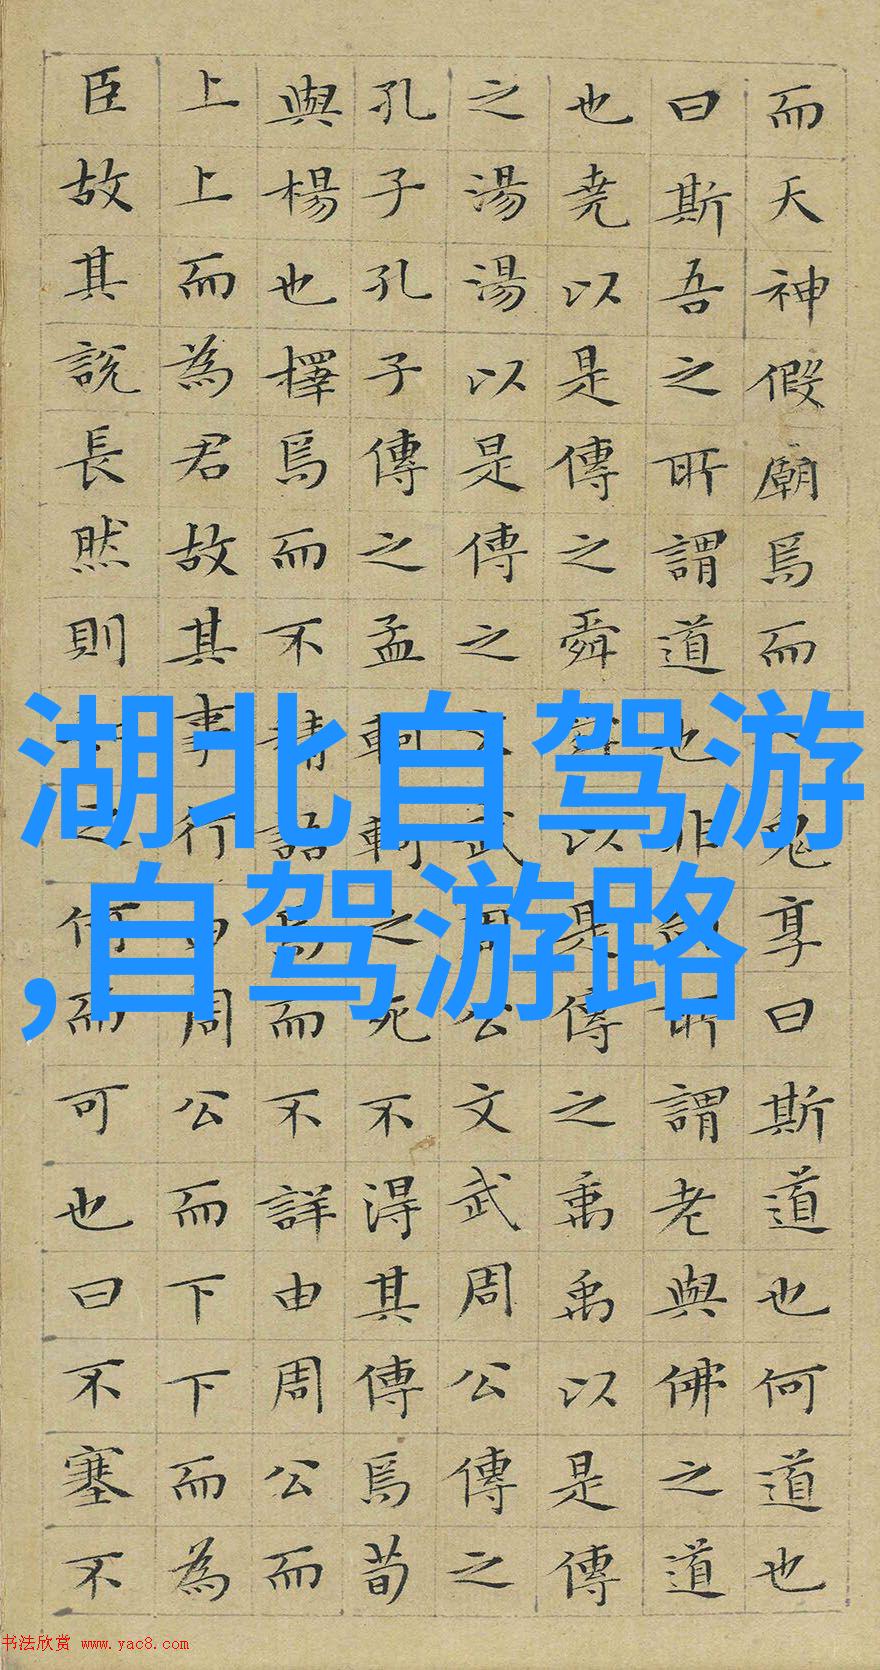 而天神假廟焉而鬼享曰斯道也何道也
曰斯吾之所謂道也非所謂老與佛之道
也堯以是傳之舜舜以是傳之禹禹以是傳
之湯湯以是傳之文武周公文武周公傳之
孔子孔子傳之孟軻軻之死不得其傳焉荀
與楊也擇焉而不精語焉而不詳由周公而
上上而為君故其事行由周公而下下而為
臣故其說長然則之何而可也曰不塞不
湖北自驾游
,自驾游路
书法欣赏 www.yac8.com